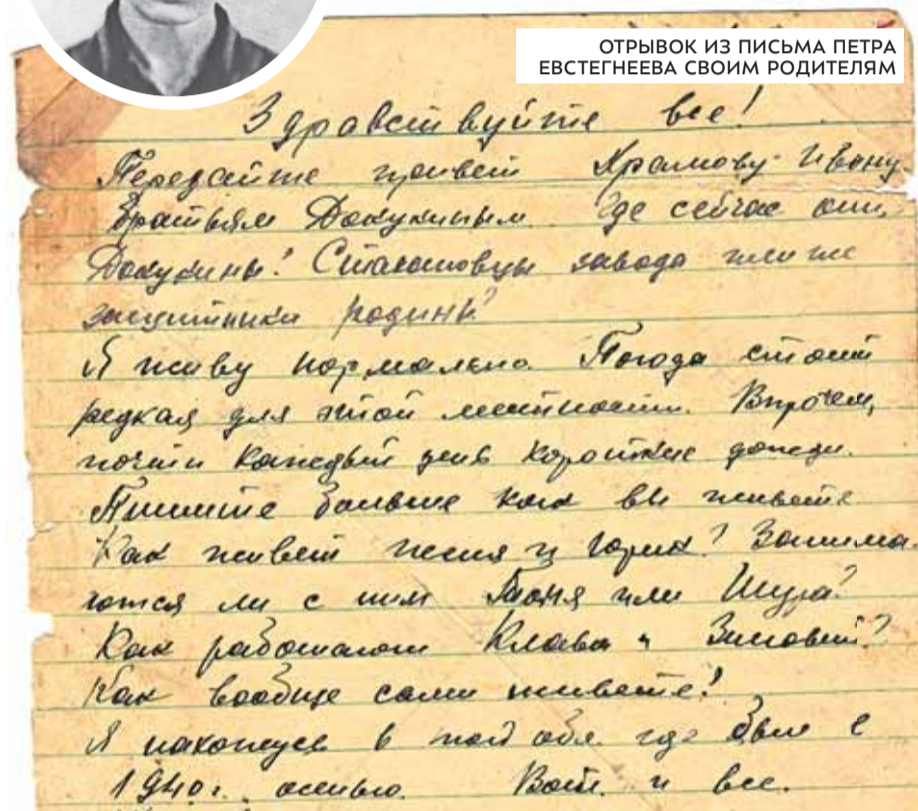 ОТРЫВОК ИЗ ПИСЬМА ПЕТРА
ЕВСТЕГНЕЕВА СВОИМ РОДИТЕЛЯМ
Здравствуйте все!
Передайте привет Храмову Ивану
братьям Докукиным Где сейчас они,
Докукины? Стахановцы завода или же
защитники родины?
Я живу нормально Погода стоит
редкая для этой местности. Впрочем,
почти каждый день короткие дожди.
Пишите больше как вы живете
Как живет Женя и Горик? Занима-
ются ли с ним Тоня или Шура?
Как работают Клава и Зиновий?
Как вообще сами живете!
Я нахожусь в той обл. где был с
1940г. осенью. Вот и все.